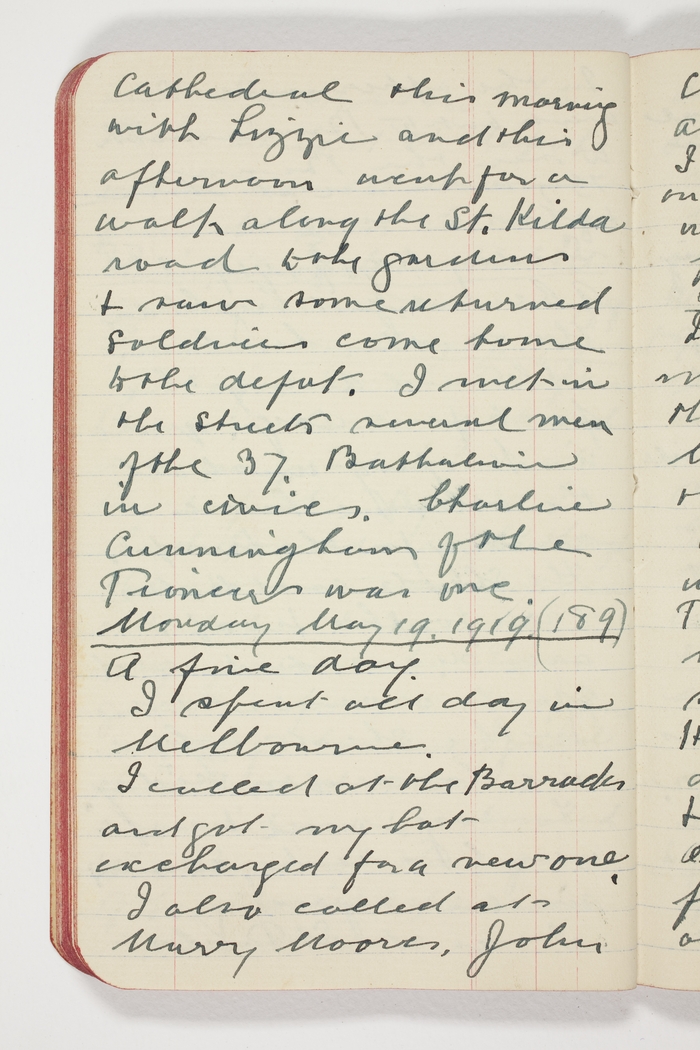 Cathedral this morning
with Lizzie and this
afternoon went for a
walk along the St. Kilda
road to the gardens
& saw some returned
soldiers come home
to the depot. I met in
the streets several men
of the 37. Battalion
in civies. Charlie
Cunningham of the
Pioneers was one.
Monday May 19. 1919. (189)
A fine day.
I spent all day in
Melbourne.
I called at the Barracks
and got my hat
exchanged for a new one.
I also called at
Murry Moores, John